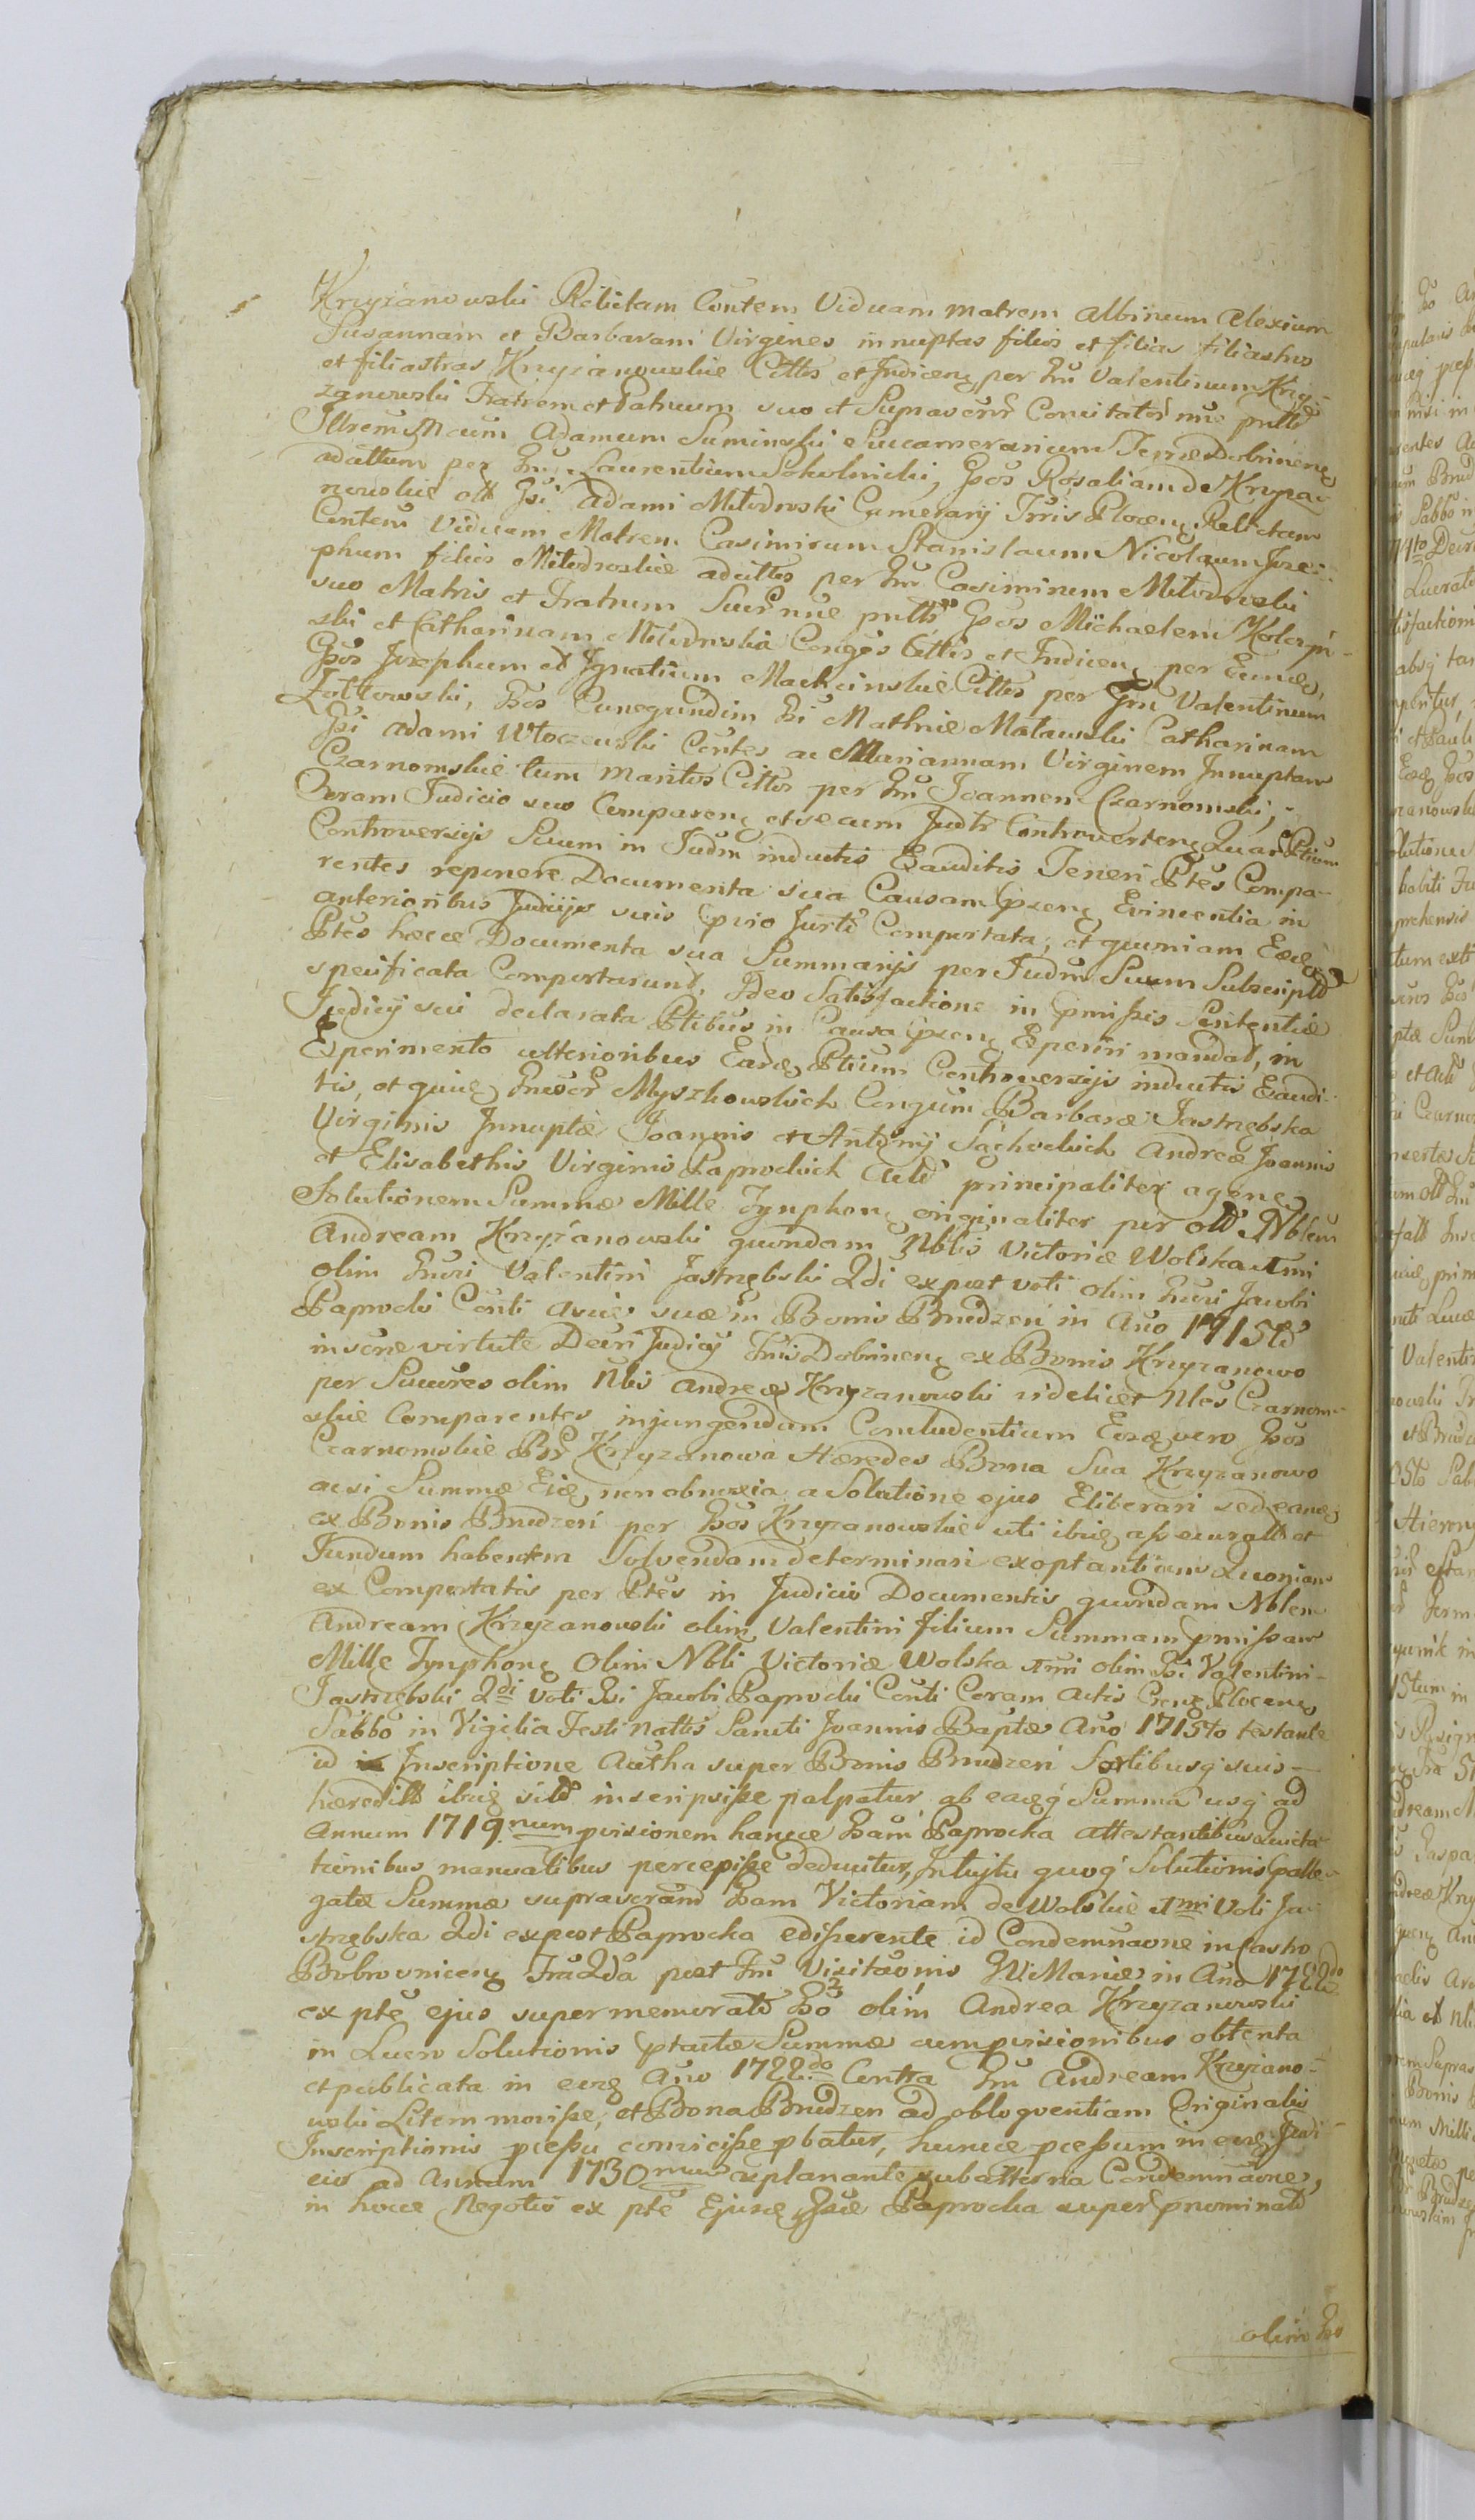 Krzyżanowski Relictam Contem Viduam matrem Albinum Alexium
Susannam et Barbaram Virgines innuptas filios et filias filiastros
et filiastras Krzyżanowskie Cittos et Judicenq per Gnm Valentinum Krzy-
żanowski Fratrem et Patruum suo et Supra
Adamum Suminski Succamerarium Terræ Dobrinenq
adcittum per Gnm Laurentium Sokolnicki, Gsos Rosaliam de Krzyża-
nowskie olt Gsi Adami Miłodroski Camerarij Trris Plocenq Relictam
Contem Viduam Matrem Casimirum Stanislaum Nicolaum Joze-
phum filios Miłodroskie adcittos per Gnm Casimirum Miłodroski
suo Matris et Fratrum Gsos Michaelem
ski et Catharinam Miłodroska Conges Cittos et Judicenq per Eundq,
Gsos Josephum et Ignatium Machcinskie Cittos per Gnm Valentinum
Zołtowski, Gsos Cunegundim Gsi Mathiæ Małowski Catharinam
Gsi Adami Włoczewski Contes ac Mariannam Virginem Innuptam
Czarnomskie tum maritos Cittos per Gnm Joannem Czarnomski,
Coram Judicio suo Comparenq et secum Judtr Controvertenq Quar Ptium
Controversijs Suum in Judm inductis Exauditis Teneri Ptes Compa-
rentes reponere Documenta sua Causam Gpzenq Evincentia in
anterioribus Judicijs suis Comportata, et quoniam Eædq
Ptes hæcce Documenta sua Summarijs per Judm Suum Subscriptt
specificata Comportarunt, Ideo Satisfactione in pmissis Sententiæ
Judicij sui declarata Ptibus in Causa Gpzenq Experiri mandat, in
Experimento ulterioribus Eardq Ptium Controversijs inductis Exaudi-
tis, et quiq Myszkowskich Congum Barbaræ Jastrzębska
Virginis Innuptæ Joannis et Antonij Sąchockich Andreæ Joannis
et Elisabethis Virginis Paprockich principaliter agenq
Solutionem Summæ Mille Tynphonq originaliter per olt Nblem
Andream Krzyżanowski quondam Nblis Victoriæ Wolska 1mi
olim Gnri Valentini Jastrzębski 2di expost voti olim Gnri Jacobi
Paprocki Conti aviæ suæ in Bonis Brudzeń in Ano 1715to
inscrtæ virtute Decri Judicij Trris Dobrinenq ex Bonis Krzyzanowo
per Succres olim Nbis Andreæ Krzyzanowski videlicet Nles Czarnom-
skie Comparentes injungendam Concludentium Eosq vero Gsos
Czarnomskie Bor Krzyzanowa Hæredes Bona Sua Krzyzanowo
acsi Summæ Eiq non obnoxia a Solutione ejus Eliberari sed eanq
ex Bonis Brudzeń per Gsos Krzyzanowskie uti ibiq assecuratt et
Fundum habentem Solvendam determinari exoptantium Quoniam
ex Comportatis per Ptes in Judicio Documentis quondam Nblem
Andream Krzyzanowski olim Valentini filium Summam pmissam
Mille Tynphonq Olim Nbli Victoriæ Wolska 1mi olim Gsi Valentini
Jastrzębski 2di Voti Gsi Jacobi Paprocki Conti Coram Actis Plocenq
Sabbo in Vigilia Festi Nattis Sancti Joannis Baptæ Ano 1715to testante
id Inscriptione Autha super Bonis Brudzeń Sortibusq suis
hæreditt ibiq sitt inscripsisse palpatur, ab eaeq Summa usq ad
Annum 1719num provisionem hancce Gsam Paprocka attestantibus Quieta-
tionibus manualibus percepisse deducitur, Intuitu quoq Solutionis Galle-
gatæ Summæ Gsam Victoriam de Wolskie 1mi Voti Ja-
strzębska 2di expost Paprocka edisserente id Condemnaone in Castro
Bobrovnicenq Fra 2da post Fm Visitaonis BVMariæ in Ano 1722do
ex pte ejus supermemorato Gso olim Andrea Krzyzanowski
in Lucro Solutionis ptactæ Summæ cum provisionibus obtenta
et publicata in eoq Ano 1722do Contra Gm Andream Krzyżano-
wski Litem movisse, et Bona Brudzen ad obloquentiam Originalis
Inscriptionis pcessu convicisse pbatur, huncce pcessum in eoq Judi-
cio ad Annum 1730mum explanante subalterna Condemnaone,
in hocce Negotio ex pte Ejusdq Gsæ Paprocka super pnominatt
olim Gso